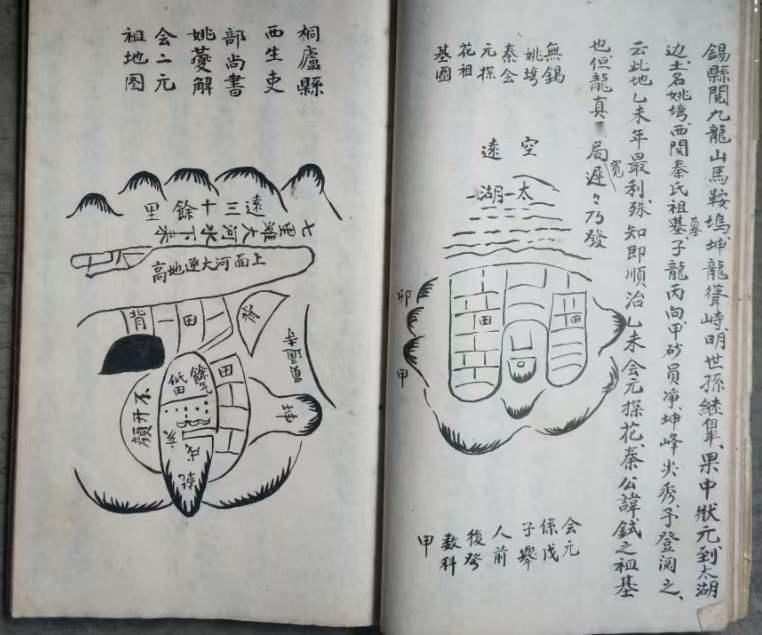 錫縣閱九龍山馬鞍塢坤龍聳峙、明世孫繼皋、果中狀元到太湖
邊、土名姚塆、西閱秦氏祖基、墓子龍丙向、甲砂員淨、坤峰尖秀、予登閱之、
云此地乙未年最利、殊知即順治乙未会元探花、秦公諱鉽之祖基
也、但龍真局寛遲々乃發
無錫
姚塆
秦会
元探
花祖
基圖
空遠
太湖
田
田
卯
甲
会元
係戊
子舉
人前
後發
数科
甲
桐廬縣
西生吏
部尚書
姚夔解
会二元
祖地图
遠三十餘里
七里灘大河水下来
上面河大逆地高
背
田
背
餘气
低田
田
不开顏
亥
戌
乾
坤